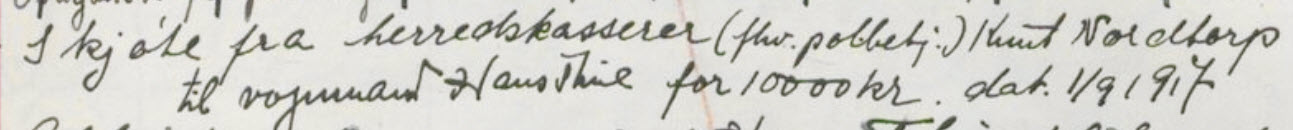 Skjøte fra herredskasserer (fhv. polbetj.) Knut Nordtorp
til vognmand Hans Thine for 10000 kr. dat. 1/9 1917